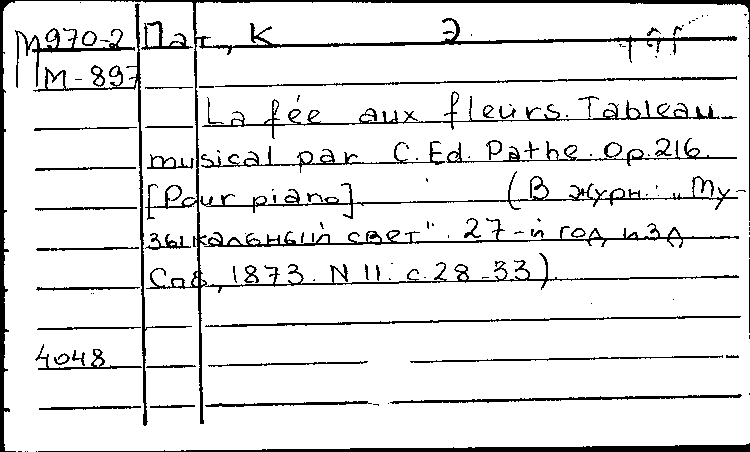 М970-2 Пат, К Э
М-897
La fée aux fleurs. Tableau
musical par C. Ed. Pathe. Op. 216.
[Pour piano]. (В журн.: „Му-
зыкальный свет". 27-й год изд
Спб, 1873. N 11. с. 28-33)
4048